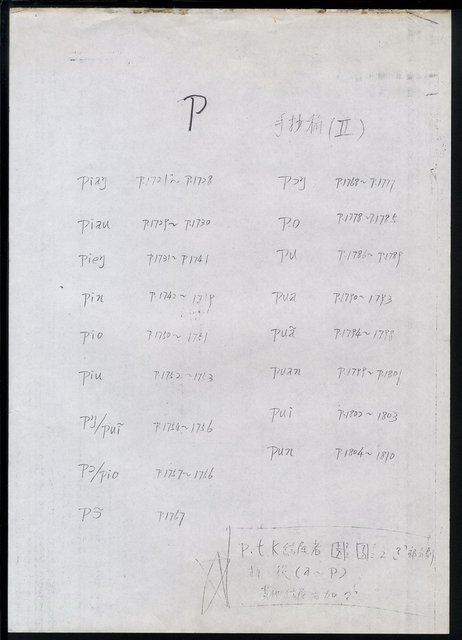 P
手抄稿(II)
piaŋ P.1721~P.1728
piau P.1729~P.1730
pieŋ P.1731~P.1741
pin P.1742~1749
pio P.1750~1751
piu P.1752~1753
pŋ/puĩ P.1754~1756
pɔ/pio P.1757~1766
pɔ̃ P.1767
pɔŋ P.1768~P.1777
po P.1778~P.1785
pu P.1786~P.1789
pua P.1790~1793
puã P.1794~1798
puan P.1799~P.1801
pui P.1802~1803
pun P.1804~1810
P.t.k 結尾者
(a~p)